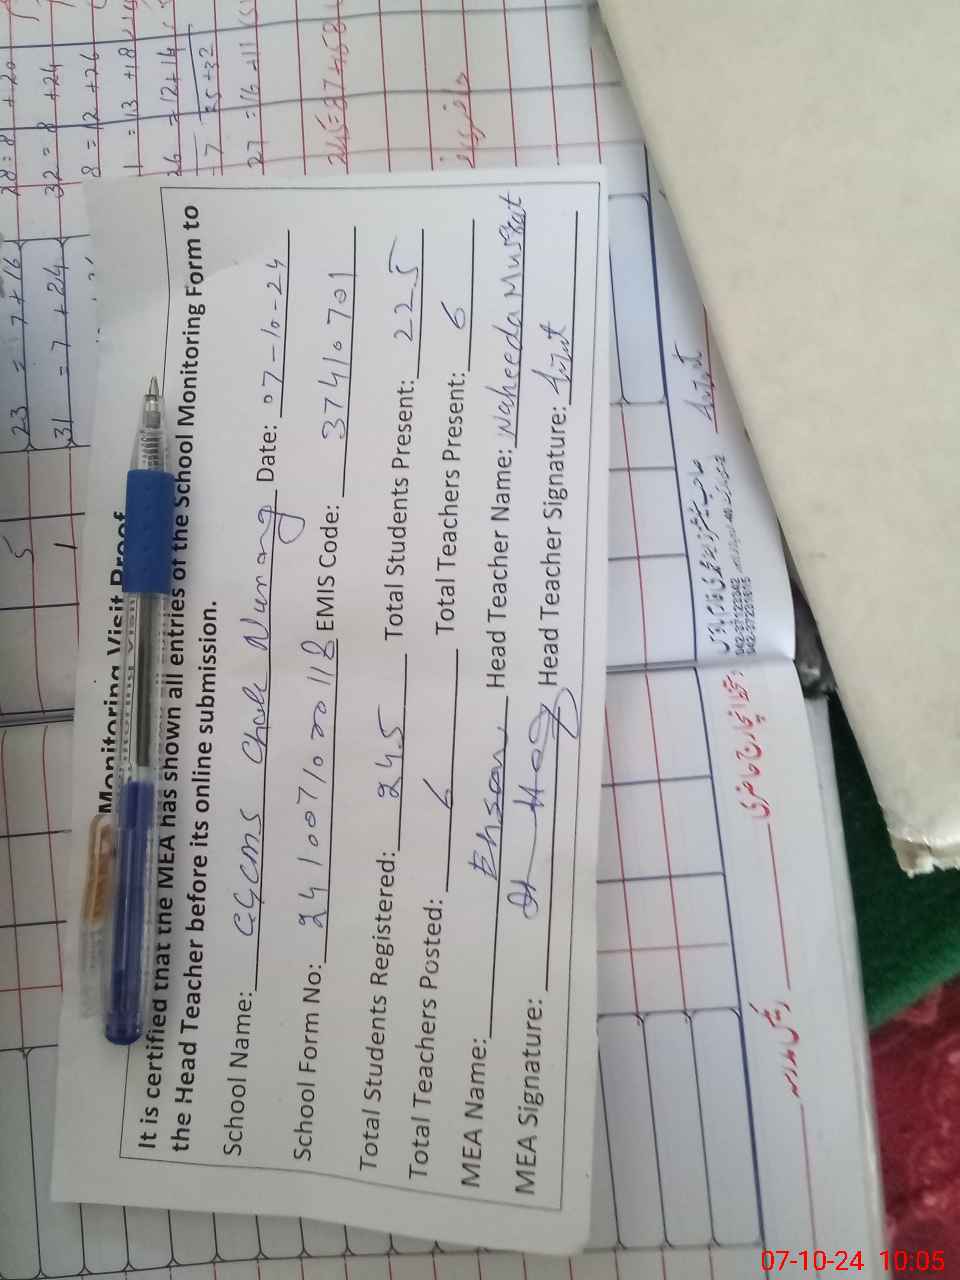 Monitoring Visit Proof
It is certified that the MEA has shown all entries of the School Monitoring Form to
the Head Teacher before its online submission.
School Name: GGCMS Chak Nurang Date: 07-10-24
School Form No: 241007100118 EMIS Code: 37410701
Total Students Registered: 245 Total Students Present: 225
Total Teachers Posted: 6 Total Teachers Present: 6
MEA Name: Ehsan Head Teacher Name: Naheeda Musrat
MEA Signature: Head Teacher Signature:
28 = 8 + 20
32 = 8 + 24
8 = 12 + 26
1 = 13 + 18
26 = 12 + 14
27 = 16 + 11
245 = 87 + 158
23 = 7 + 16
31 = 7 + 24
5
1
042-37122342
042-37231615
دستخط انچارج حاضری
رئیس مدرسہ
07-10-24 10:05